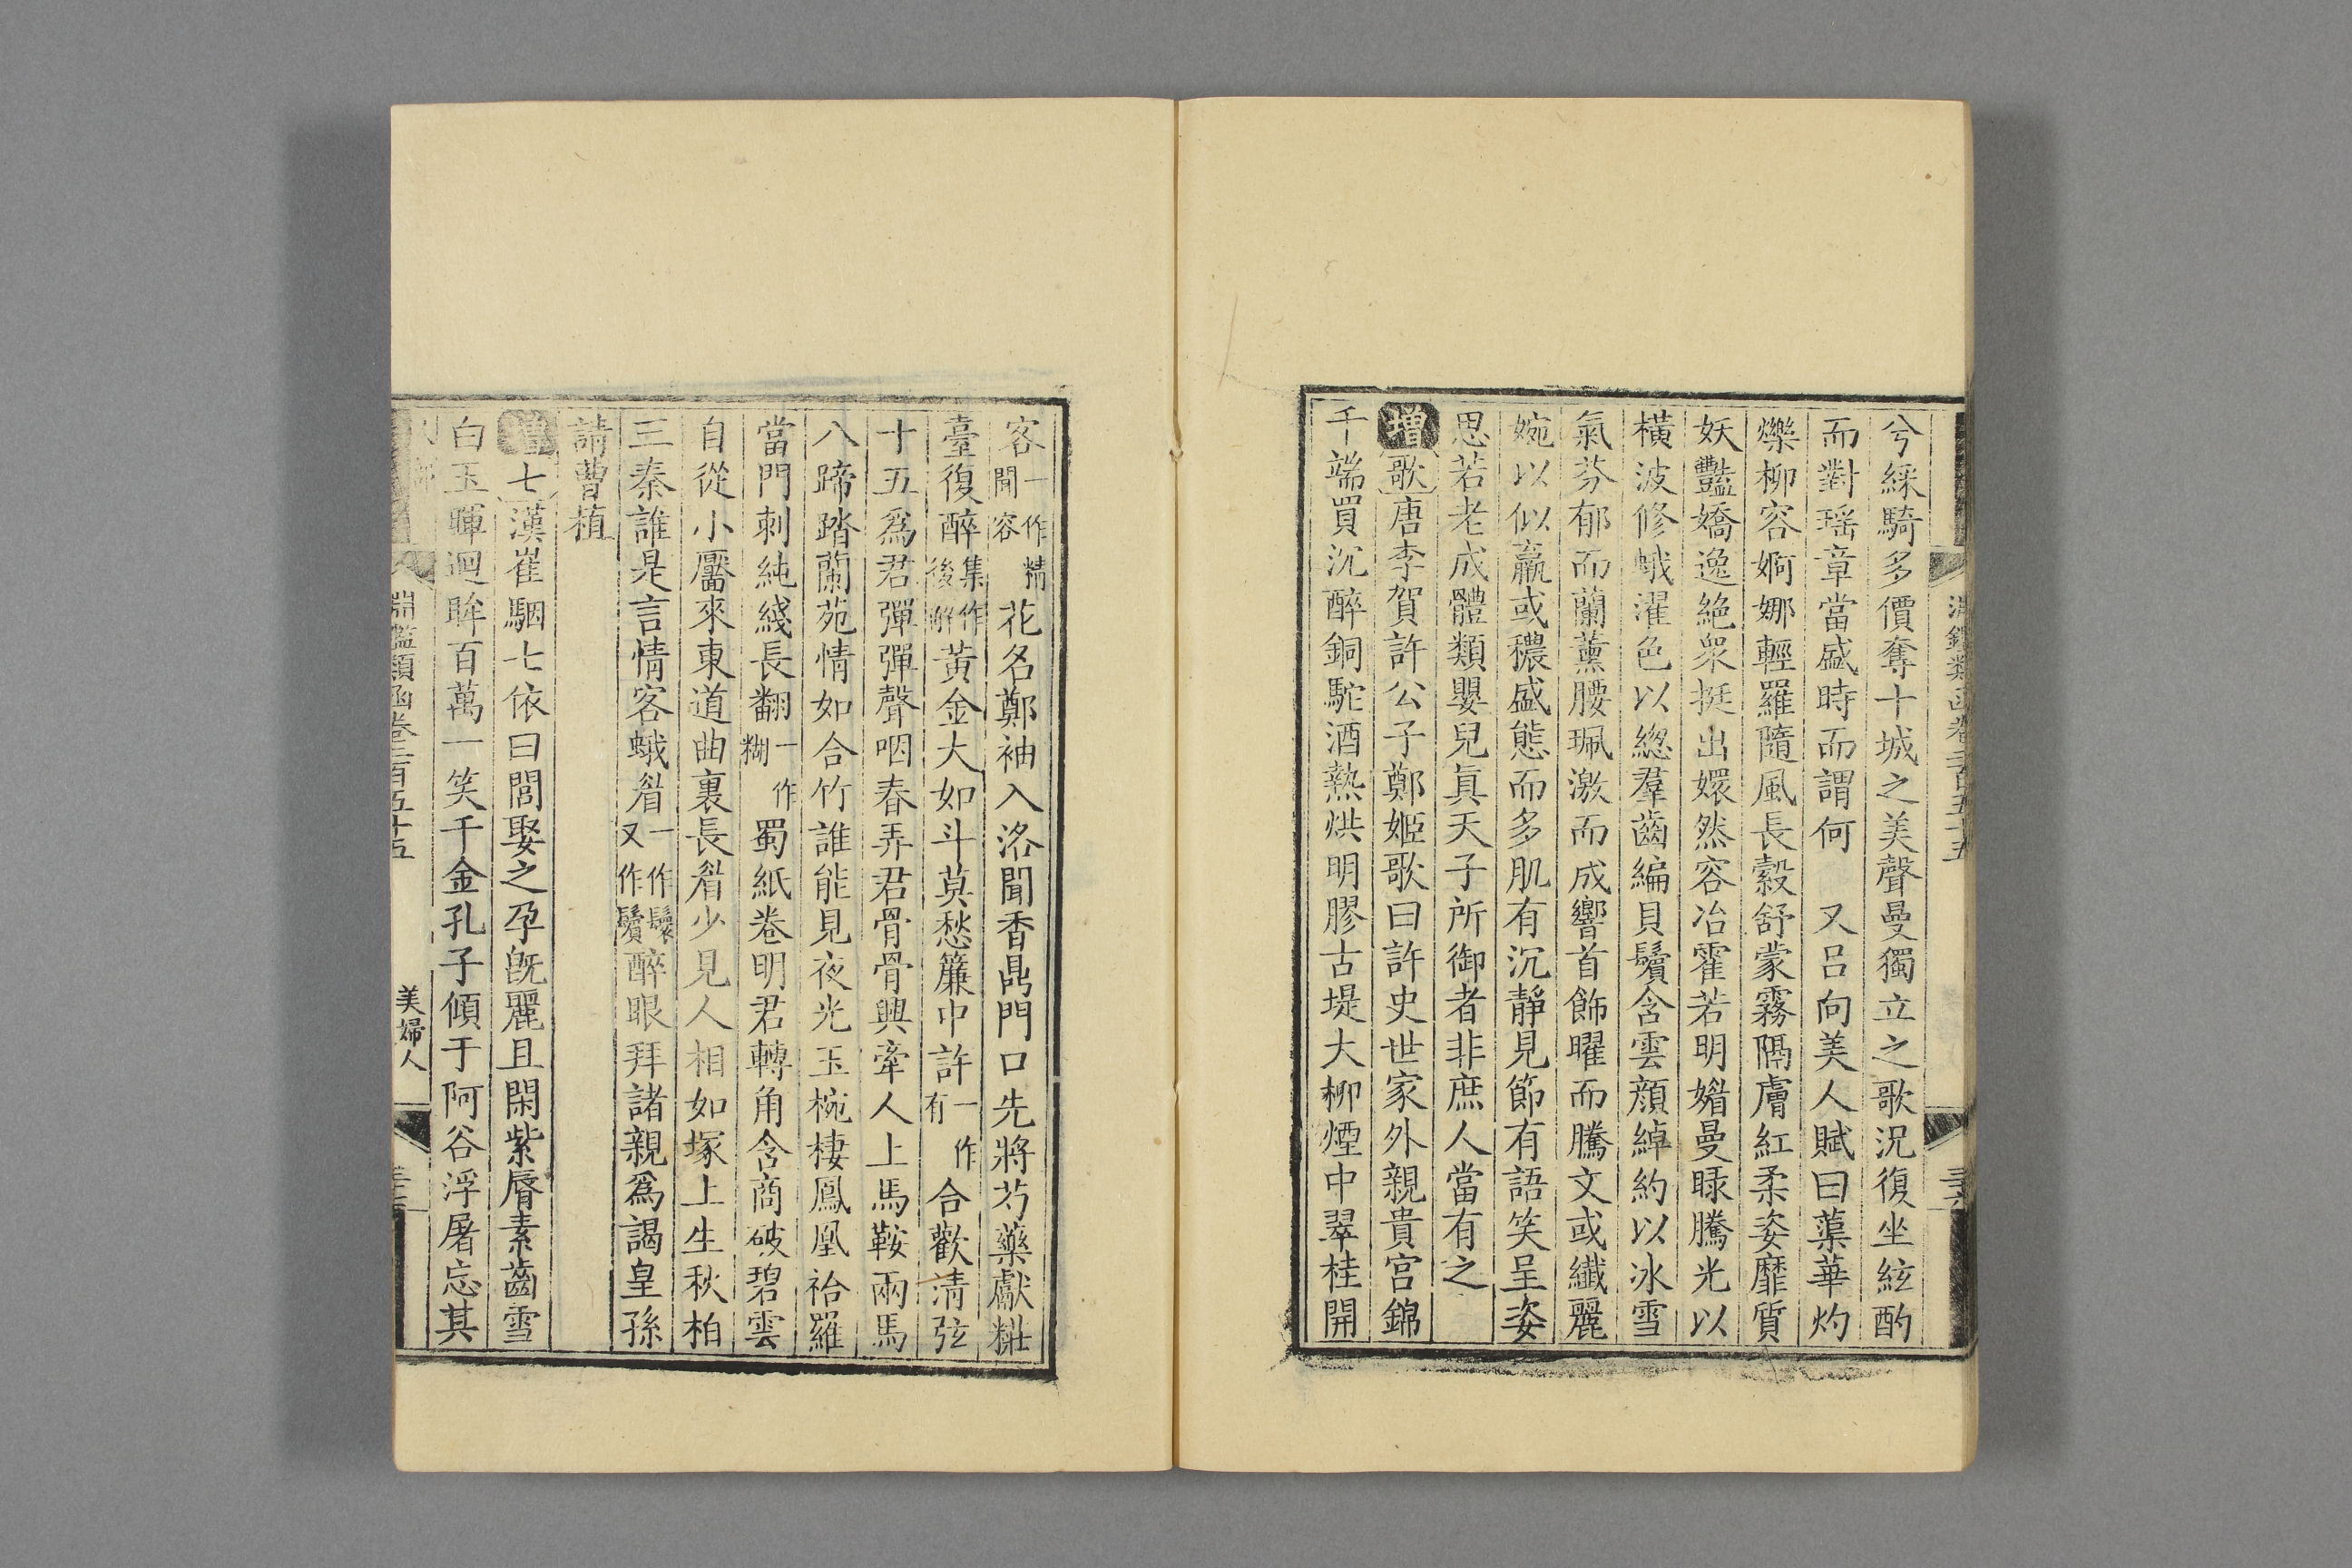 兮綵騎多價奪十城之美聲曼獨立之歌況復坐絃酌
而對瑶章當盛時而謂何　又呂向美人賦曰蕖華灼
爍柳容婀娜輕羅隨風長縠舒蒙霧隔膚紅柔姿靡質
妖豔嬌逸絶衆挺出嬛然容冶霍若明媚曼睩騰光以
橫波修蛾濯色以緫羣齒編貝鬢含雲顔綽約以冰雪
氣芬郁而蘭薰腰珮激而成響首飾曜而騰文或纖麗
婉以似羸或穠盛態而多肌有沉靜見節有語笑呈姿
思若老成體類嬰兒眞天子所御者非庶人當有之
增歌唐李賀許公子鄭姬歌曰許史世家外親貴宮錦
千端買沉醉銅駝酒熱烘明膠古堤大柳煙中翠桂開
客一作精聞容花名鄭袖入洛聞香鼎門口先將芍藥獻糚
臺復醉集作後解黃金大如斗莫愁簾中許一作有合歡清弦
十五爲君彈彈聲咽春弄君骨骨興牽人上馬鞍兩馬
八蹄踏蘭苑情如合竹誰能見夜光玉椀棲鳳凰袷羅
當門刺純綫長翻一作糊蜀紙卷明君轉角含商破碧雲
自從小靨來東道曲裏長眉少見人相如塚上生秋柏
三秦誰是言情客蛾眉一作鬟又作鬢醉眼拜諸親爲謁皇孫
請曹植
增七漢崔駰七依曰閭娶之孕旣麗且閑紫脣素齒雪
白玉暉迴眸百萬一笑千金孔子傾于阿谷浮屠忘其
淵鑑類函卷二百五十五
美婦人